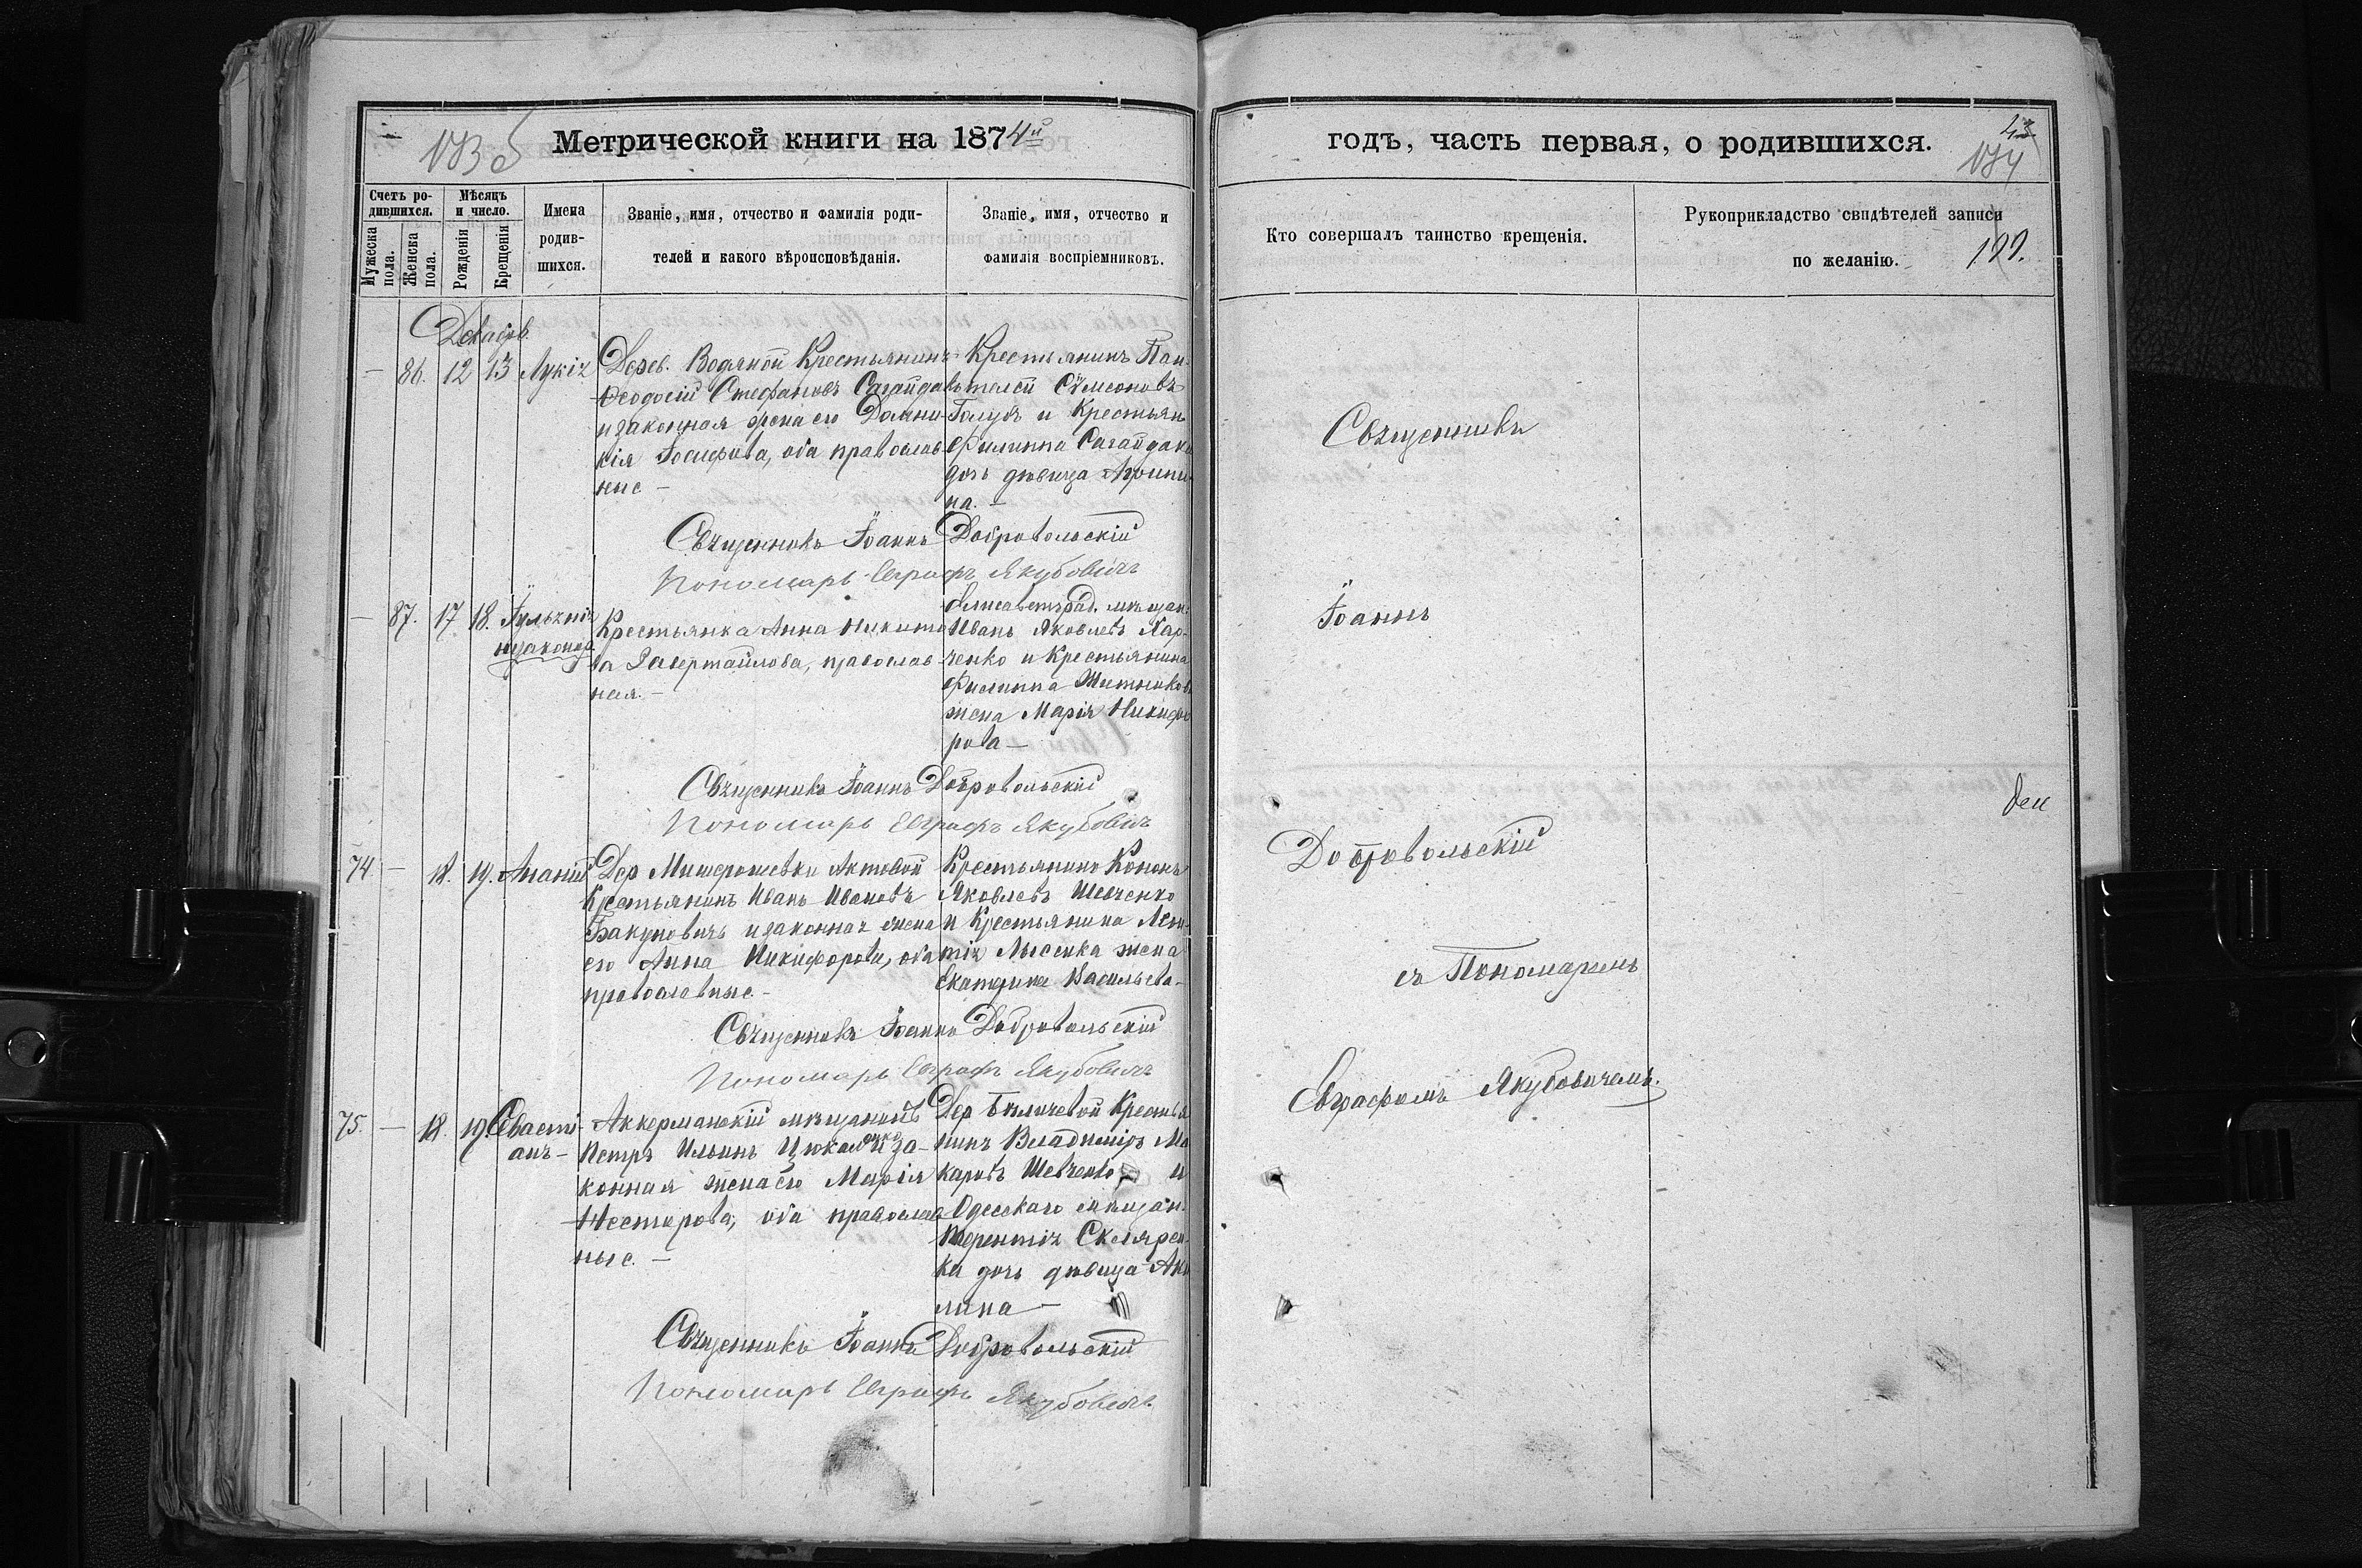 Метрической книги на 1874й
183 б
Счетъ ро-
дившихся.
Мужеска пола.
Женска пола.
Мѣсяцъ
и число.
Рожденія
Крещенія
Имена
родив-
шихся.
Званіе, имя, отчество и фамилія роди-
телей и какого вѣроисповѣданія.
Званіе, имя, отчество и
фамилія воспріемниковъ.
Декабрь
— 86. 12 13 Лукія
Дерев. Водяной Крестьянинъ
Ѳеодосій Стефановъ Сагайдакъ
и законная жена его Домни-
кія Іосифова, оба православ-
ные —
Крестьянинъ Пан-
телей Сѵмеоновъ
Голубъ и Крестьян.
Филиппа Сагайдака
дочь дѣвица Агрипи-
на. —
Священникъ Іоаннъ Добровольскій
Пономарь Евграфъ Якубовичъ
— 87. 17 18. Іульянія
незаконор.
Крестьянка Анна Никито-
ва Завертайлова, православ-
ная. —
Елисаветград. мѣщан.
Иванъ Яковлевъ Хар-
ченко и Крестьянина
Филиппа Житникова
жена Марія Никифо-
рова —
Священникъ Іоаннъ Добровольскій
Пономарь Евграфъ Якубовичъ
74 — 18. 19. Ананій
Дер Актовой
Крестьянинъ Иванъ Ивановъ
Бакуновичъ и законная жена
его Анна Никифорова, оба
православные. —
Крестьянинъ Кононъ
Яковлевъ Шевченко
и Крестьянина Леон-
тія Лысенка жена
Екатерина Васильева —
Священникъ Іоаннъ Добровольскій
Пономарь Евграфъ Якубовичъ
75. — 18. 19. Севасті-
анъ —
Аккерманскій мѣщанинъ
Петръ Ильинъ и за-
конная жена его Марія
Нестерова, оба православ-
ные. —
Дер Крестья-
нинъ Владиміръ Ма-
каровъ Шевченко и
Одесскаго мѣщан.
Терентія Скляренка
дочь дѣвица Аки-
лина —
Священникъ Іоаннъ Добровольскій
Пономарь Евграфъ Якубовичъ
годъ, часть первая, о родившихся.
43
184
Кто совершалъ таинство крещенія.
Рукоприкладство свидѣтелей записи
по желанію.
199.
Священникъ
Іоаннъ
Добровольскій
съ Пономаремъ
Евграфомъ Якубовичемъ.